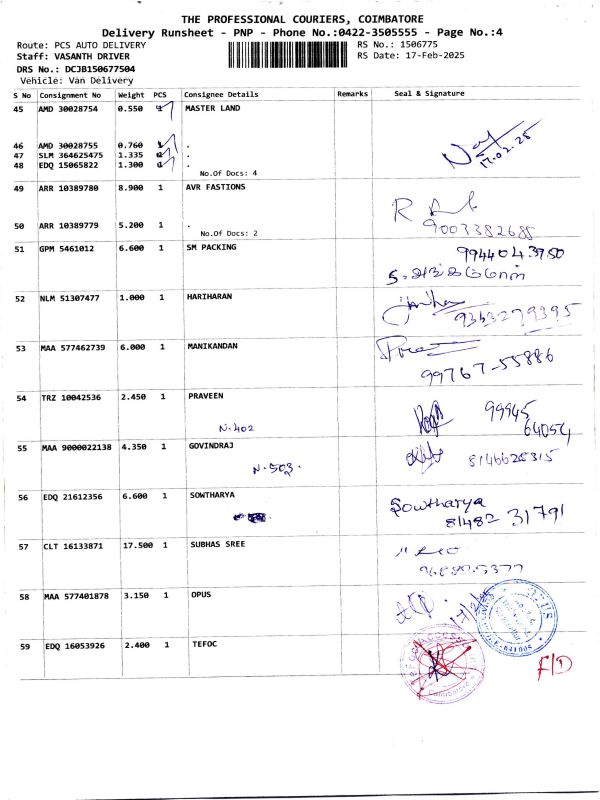 THE PROFESSIONAL COURIERS, COIMBATORE
Delivery Runsheet - PNP - Phone No.:0422-3505555 - Page No.:4
Route: PCS AUTO DELIVERY RS No.: 1506775
Staff: VASANTH DRIVER RS Date: 17-Feb-2025
DRS No.: DCJB150677504
Vehicle: Van Delivery
S No Consignment No Weight PCS Consignee Details Remarks Seal & Signature
45 AMD 30028754 0.550 MASTER LAND
46 AMD 30028755 0.760 .
17.02.25
47 SLM 364625475 1.335 .
48 EDQ 15065822 1.300 .
No.Of Docs: 4
49 ARR 10389780 8.900 1 AVR FASTIONS
50 ARR 10389779 5.200 1 .
9003382685
No.Of Docs: 2
51 GPM 5461012 6.600 1 SM PACKING
52 NLM 51307477 1.000 1 HARIHARAN
9363279395
53 MAA 577462739 6.000 1 MANIKANDAN
99767-55886
54 TRZ 10042536 2.450 1 PRAVEEN
N.402
99945
64054
55 MAA 9000022138 4.350 1 GOVINDRAJ
N.503.
8146628315
56 EDQ 21612356 6.600 1 SOWTHARYA
Sowtharya
81482 31791
57 CLT 16133871 17.500 1 SUBHAS SREE
58 MAA 577401878 3.150 1 OPUS
17/2/25
59 EDQ 16053926 2.400 1 TEFOC
Coimbatore